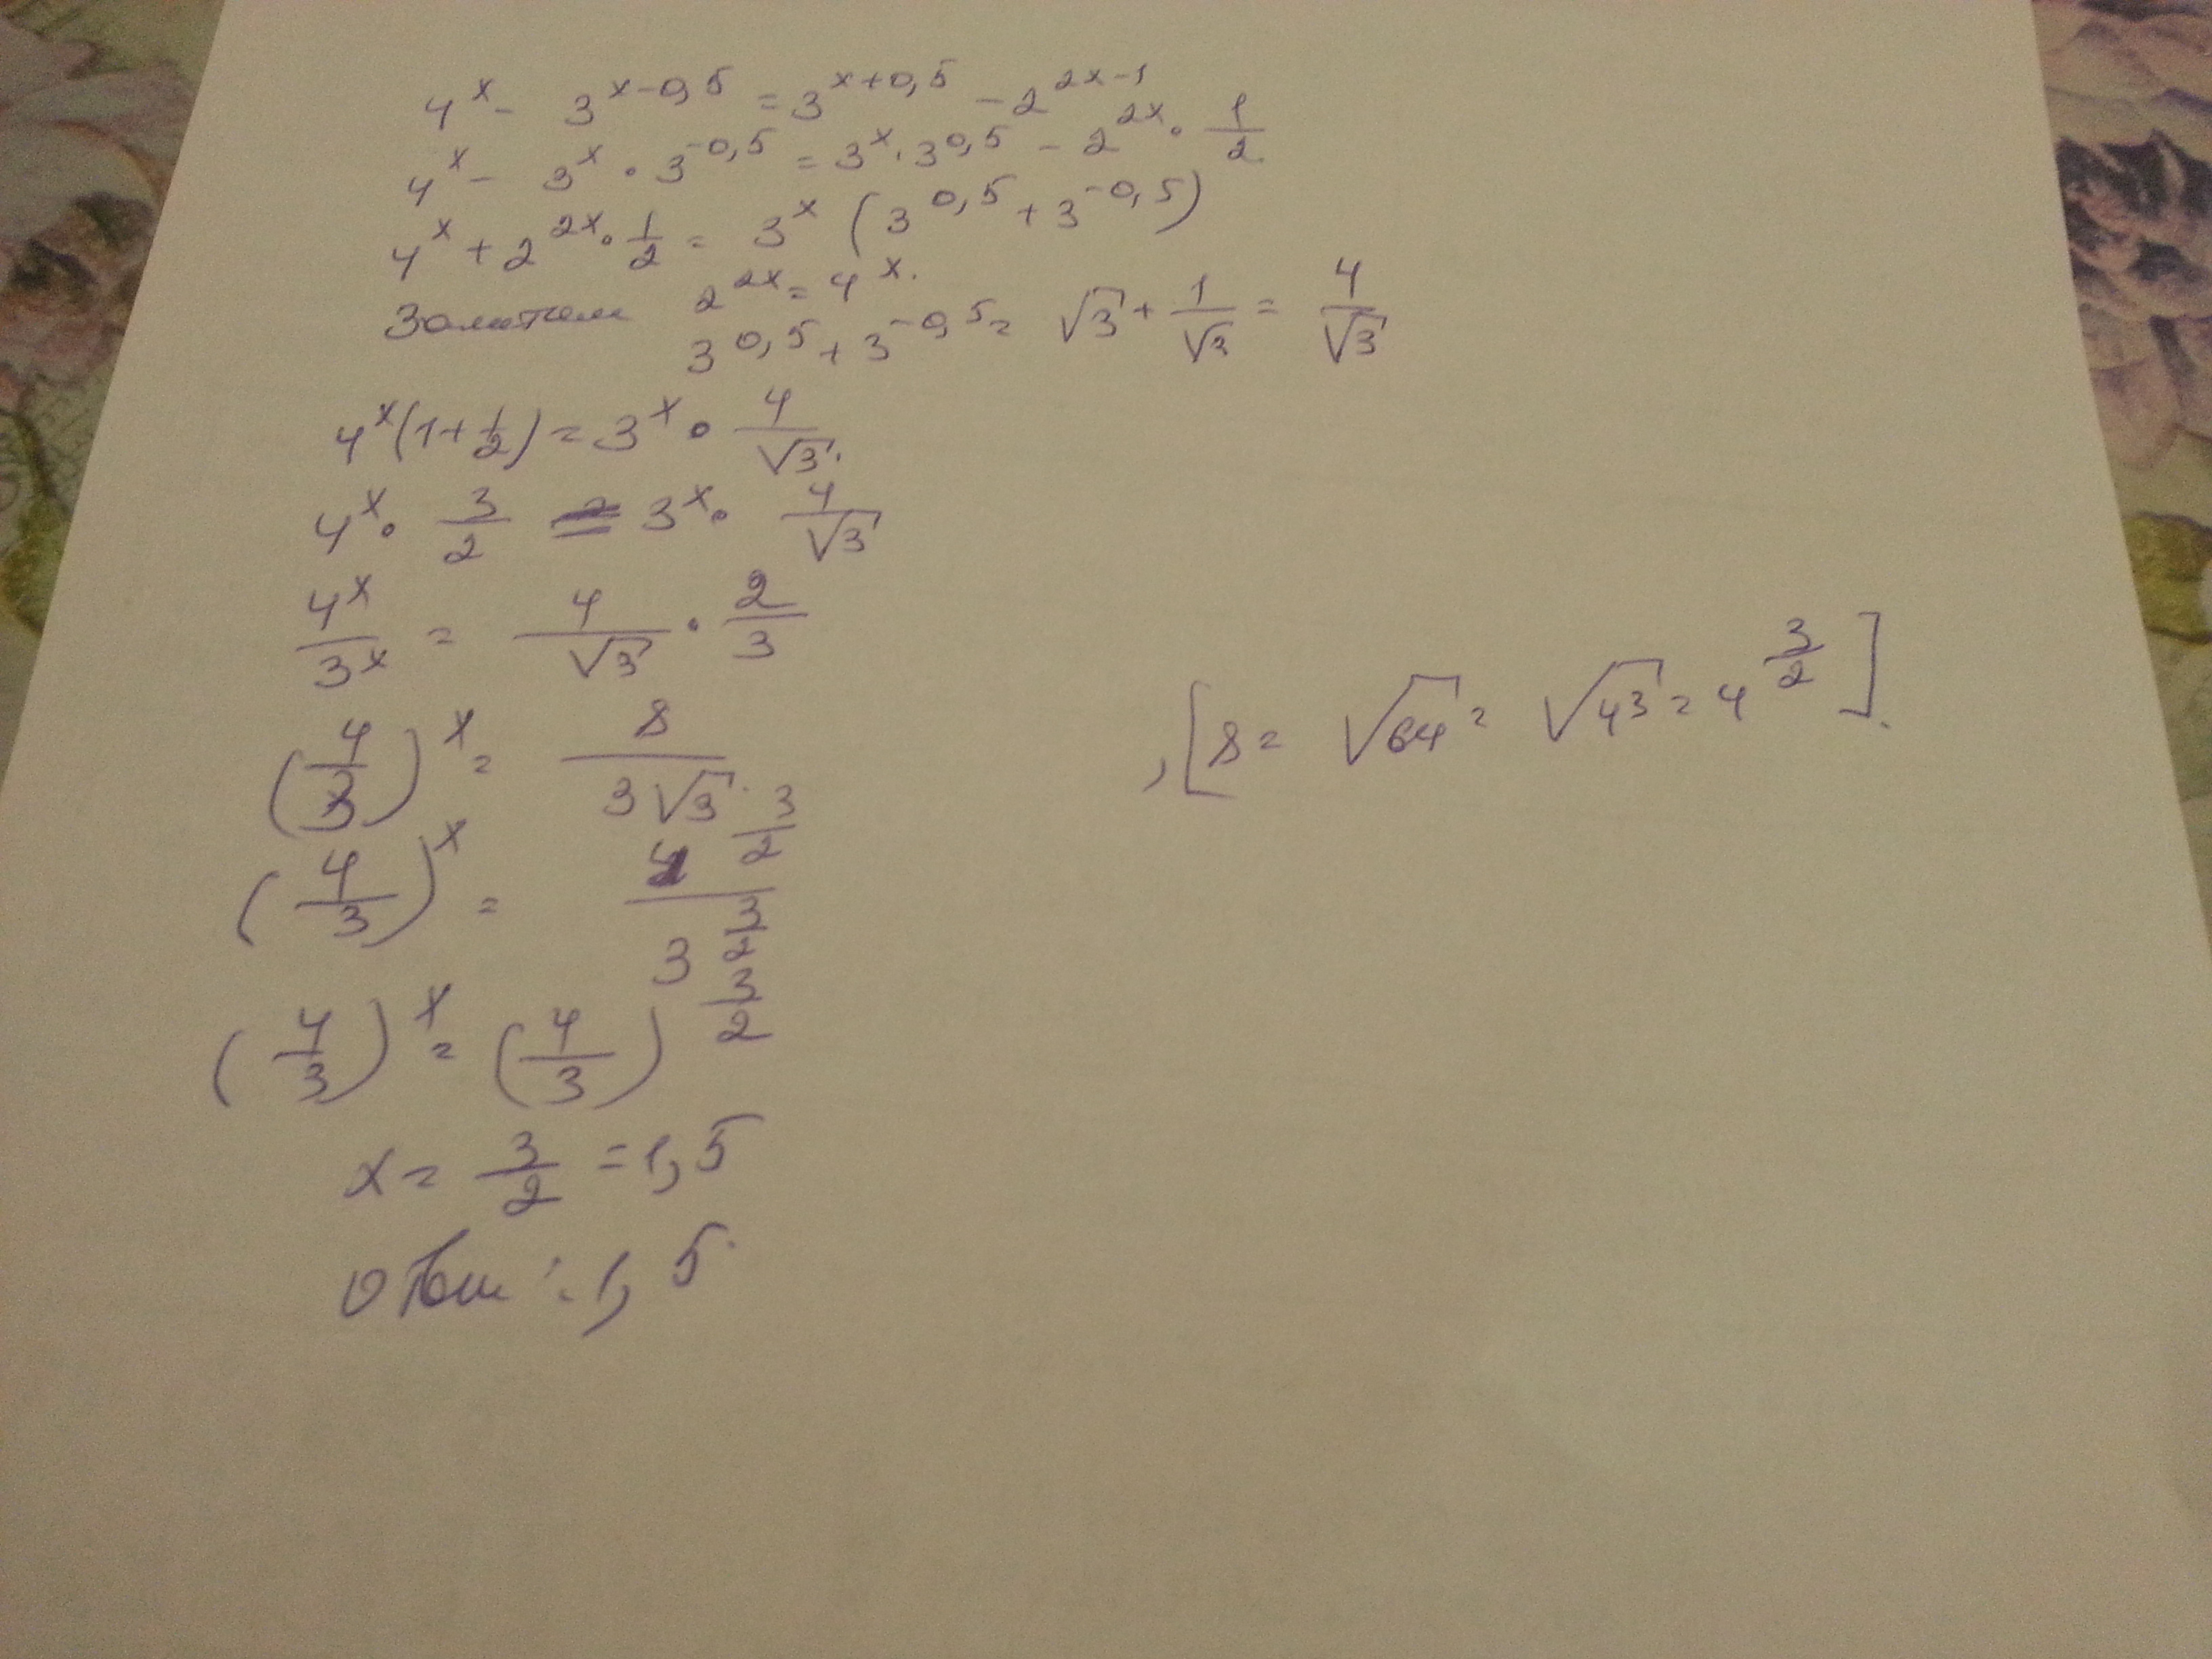 4^x - 3^{x-0,5} = 3^{x+0,5} - 2^{2x-1}
4^x - 3^x • 3^{-0,5} = 3^x · 3^{0,5} - 2^{2x} • 1/2
4^x + 2^{2x} • 1/2 = 3^x (3^{0,5} + 3^{-0,5})
Заметим 2^{2x} = 4^x.
3^{0,5} + 3^{-0,5} = √3 + 1/√3 = 4/√3
4^x (1 + 1/2) = 3^x • 4/√3.
4^x • 3/2 = 3^x • 4/√3
4^x/3^x = 4/√3 • 2/3
(4/3)^x = 8/(3√3) , [8 = √64 = √4^3 = 4^{3/2}].
(4/3)^x = 4^{3/2}/3^{3/2}
(4/3)^x = (4/3)^{3/2}
x = 3/2 = 1,5
Ответ: 1,5